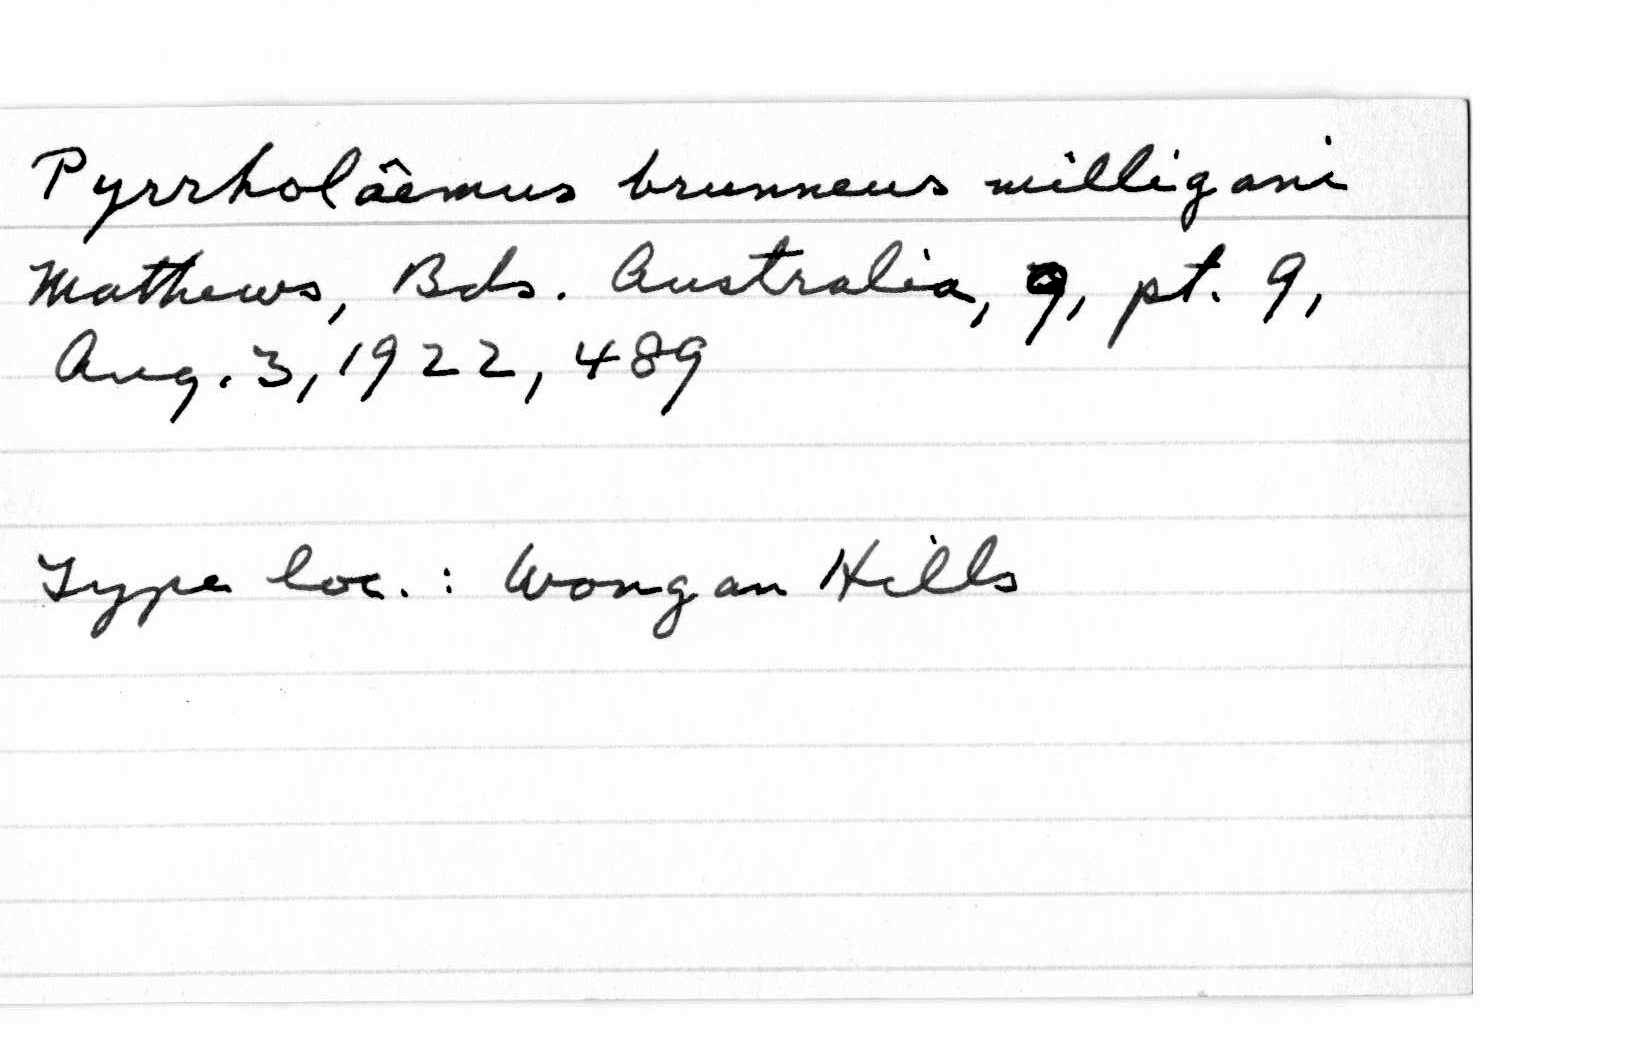 Pyrrholâemus brunneus milligani
Mathews, Bds. Australia, 9, pt. 9,
Aug. 3, 1922, 489
Type loc. : Wongan Hills